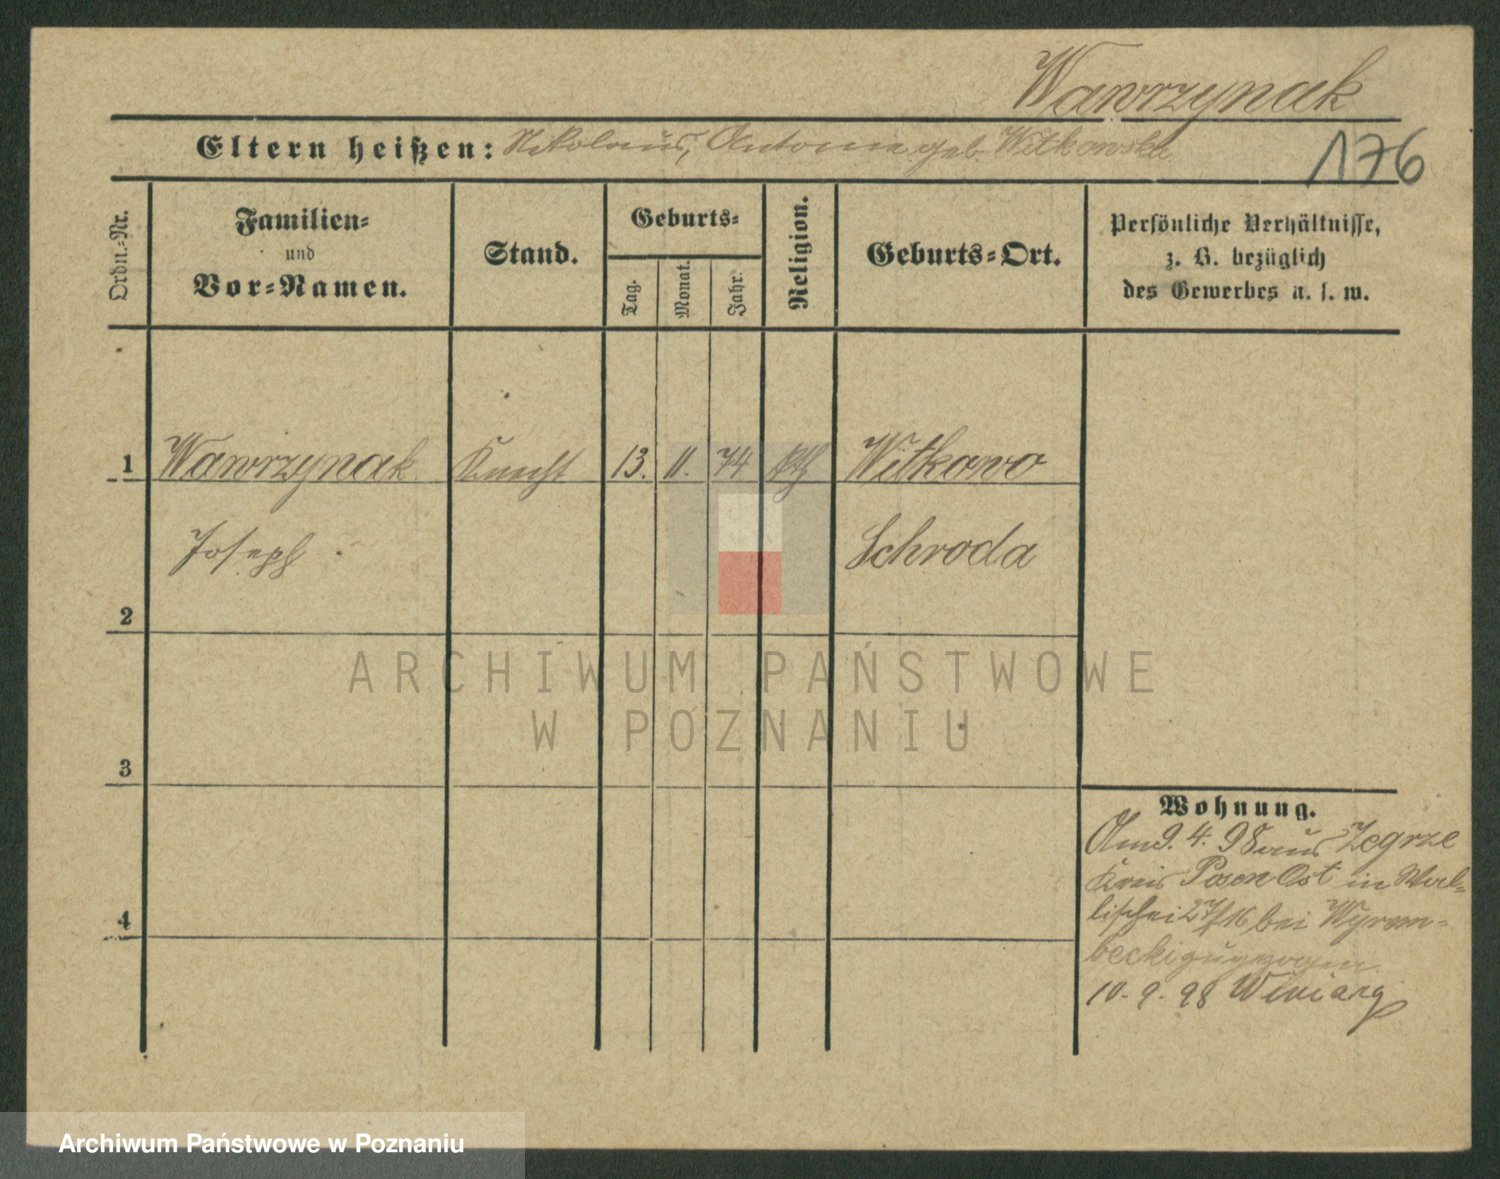 Wawrzynak
Eltern heißen: Nikolaus, Antonie geb. Witkowska
176
Ordn.-Nr.
Familien-
und
Vor-Namen.
Stand.
Geburts-
Tag.
Monat.
Jahr.
Religion.
Geburts-Ort.
Persönliche Verhältnisse,
z. B. bezüglich
des Gewerbes u. s. w.
1 Wawrzynak Knecht 13. 11. 74 kth Witkowo
Joseph Schroda
2
ARCHIWUM PAŃSTWOWE
W POZNANIU
3
Wohnung.
Am 9. 4. 98 aus Zegrze
Kreis Posen Ost in Wal-
lischei 27/16 bei
zugezogen
4
10. 9. 98 Winiary
Archiwum Państwowe w Poznaniu